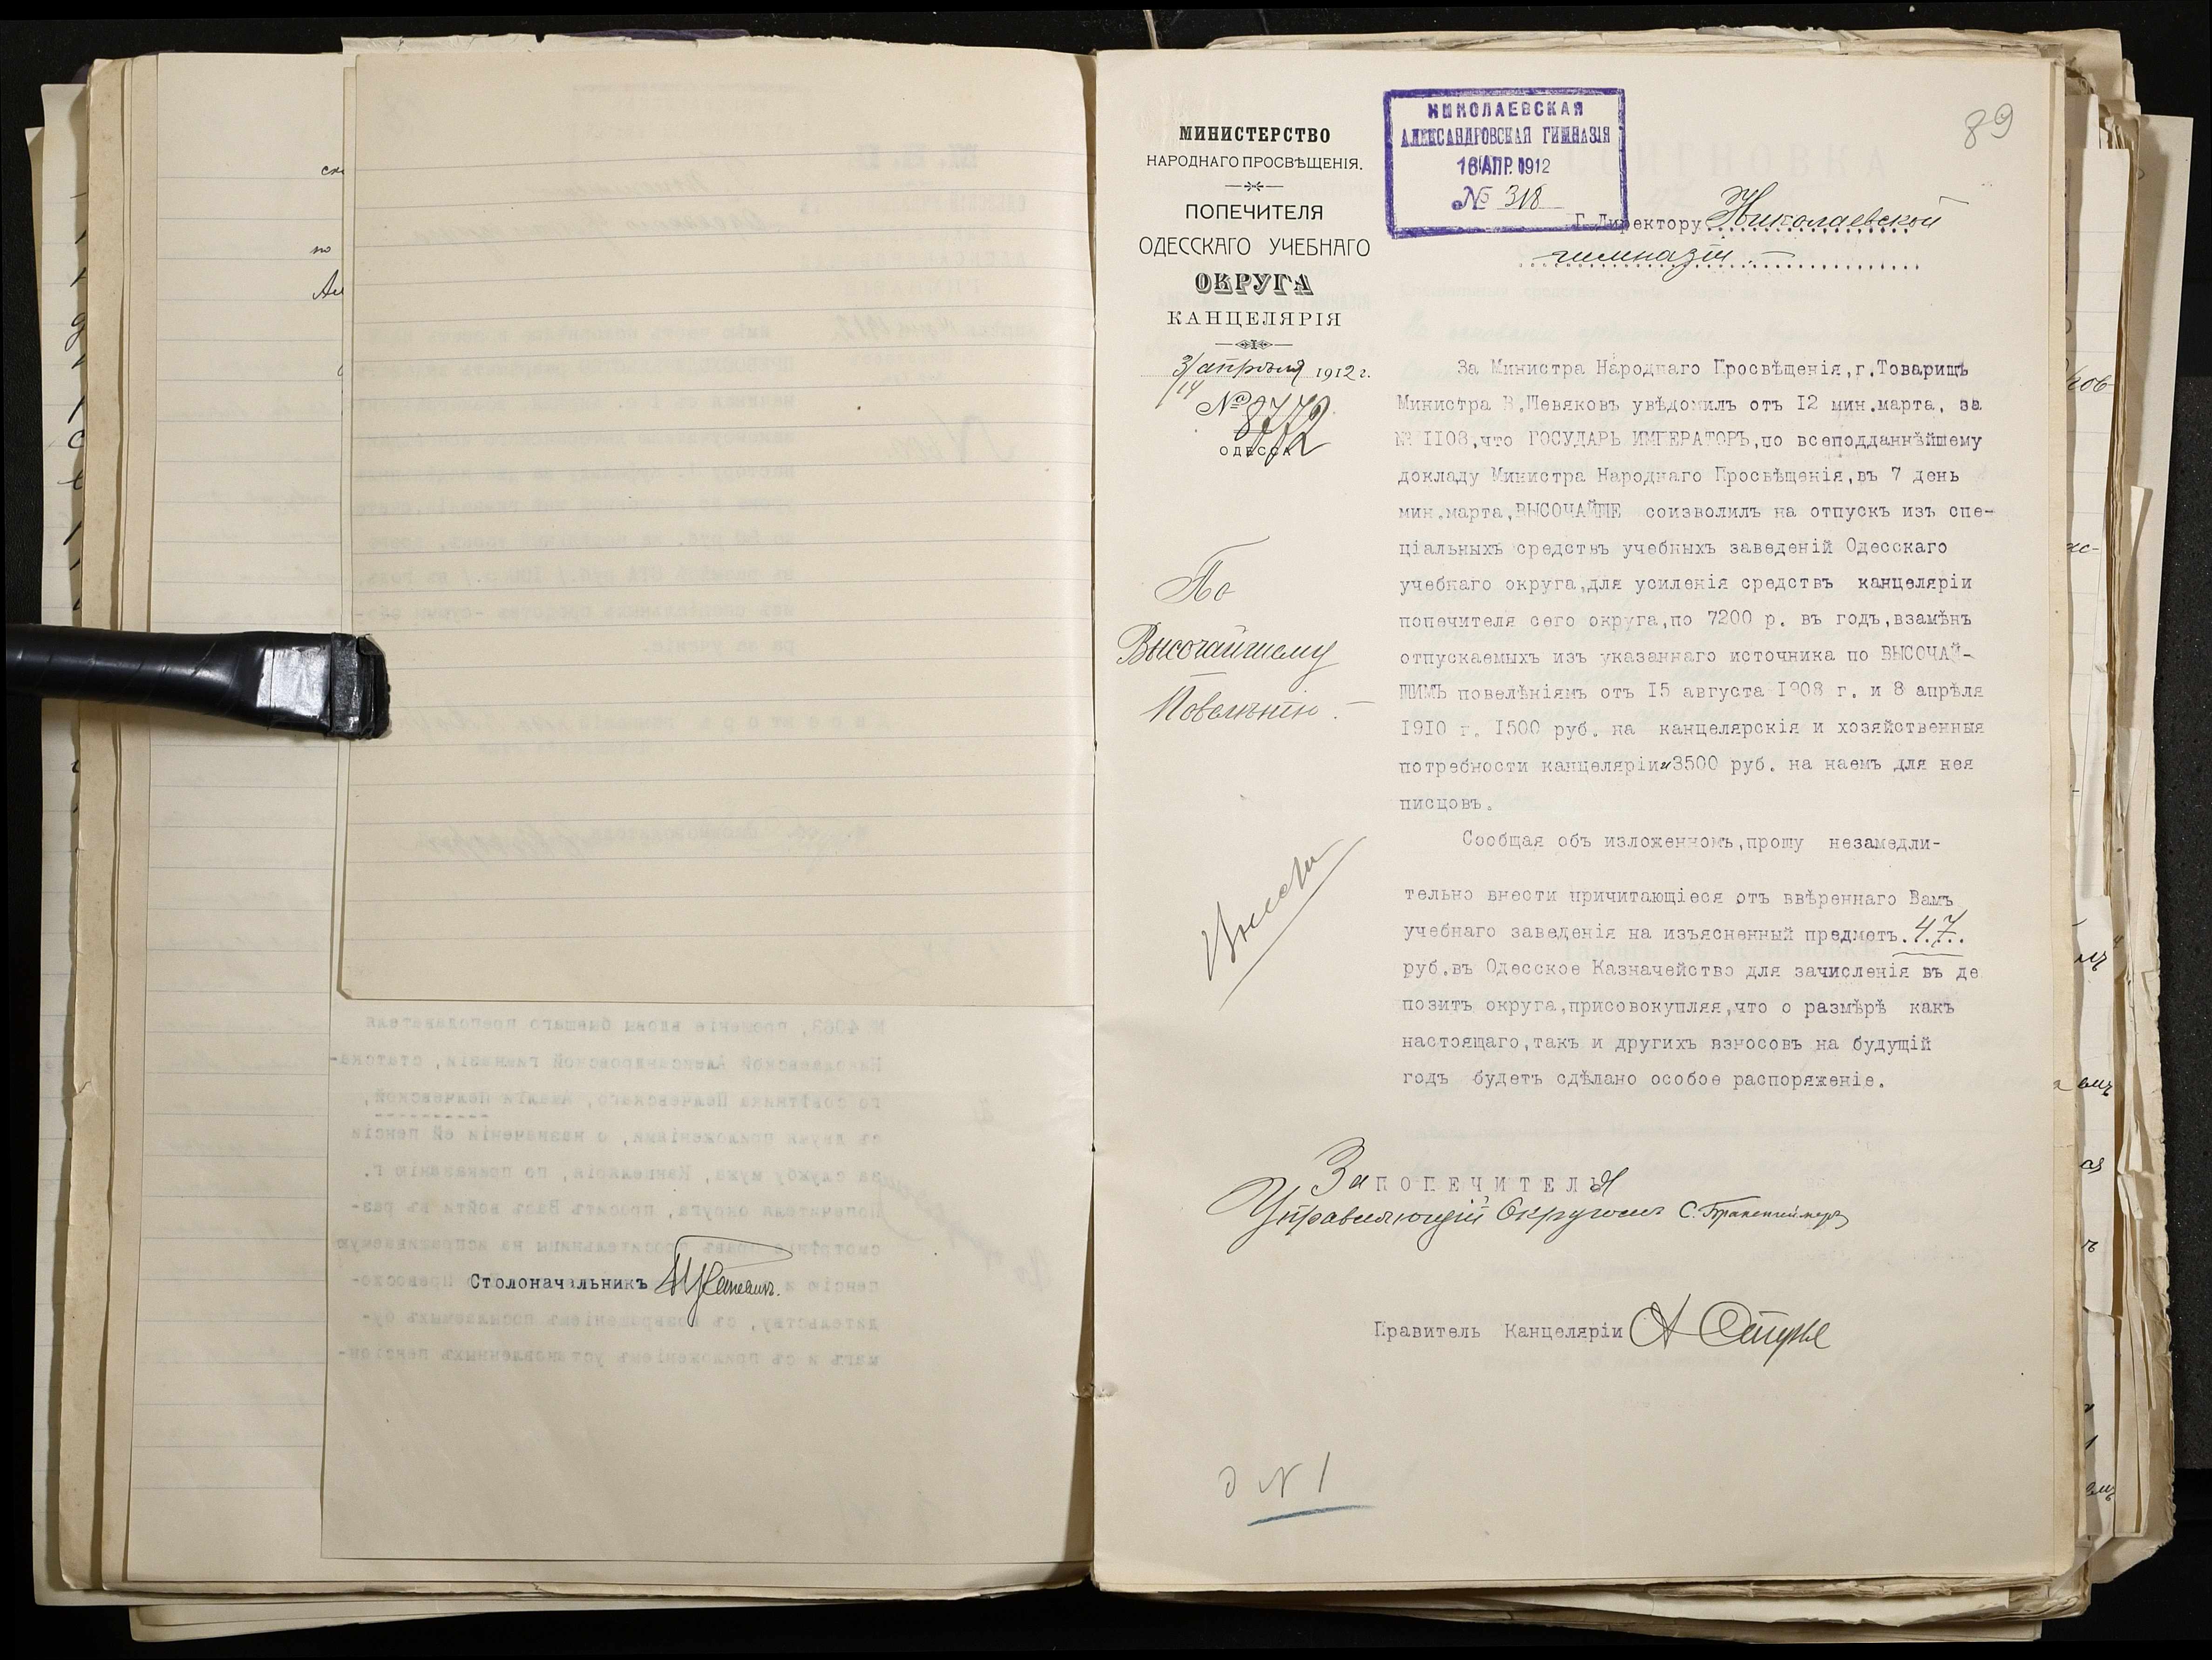 Столоначальникъ
89
МИНИСТЕРСТВО
НАРОДНАГО ПРОСВѢЩЕНІЯ.
ПОПЕЧИТЕЛЯ
ОДЕССКАГО УЧЕБНАГО
ОКРУГА
КАНЦЕЛЯРІЯ
3/14 апрѣля 1912 г.
№ 8772
ОДЕССА
НИКОЛАЕВСКАЯ
АЛЕКСАНДРОВСКАЯ ГИМНАЗІЯ
16 АПР. 1912
№ 318
Г. Директору Николаевской
гимназіи.
По
Высочайшему
Повелѣнію.
За Министра Народнаго Просвѣщенія, г. Товарищъ
Министра В. Шевяковъ увѣдомилъ отъ 12 мин. марта, за
№ 1108, что ГОСУДАРЬ ИМПЕРАТОРЪ, по всеподданнѣйшему
докладу Министра Народнаго Просвѣщенія, въ 7 день
мин. марта, ВЫСОЧАЙШЕ соизволилъ на отпускъ изъ спе-
ціальныхъ средствъ учебныхъ заведеній Одесскаго
учебнаго округа, для усиленія средствъ канцеляріи
попечителя сего округа, по 7200 р. въ годъ, взамѣнъ
отпускаемыхъ изъ указаннаго источника по ВЫСОЧАЙ-
ШИМЪ повелѣніямъ отъ 15 августа 1908 г. и 8 апрѣля
1910 г. 1500 руб. на канцелярскія и хозяйственныя
потребности канцеляріи и 3500 руб. на наемъ для нея
писцовъ.
Сообщая объ изложенномъ, прошу незамедли-
тельно внести причитающіеся отъ ввѣреннаго Вамъ
учебнаго заведенія на изъясненный предметъ 47
руб. въ Одесское Казначейство для зачисленія въ де
позитъ округа, присовокупляя, что о размѣрѣ какъ
настоящаго, такъ и другихъ взносовъ на будущій
годъ будетъ сдѣлано особое распоряженіе.
Внести
За ПОПЕЧИТЕЛЯ
Управляющій Округомъ
Правитель Канцеляріи
д № 1